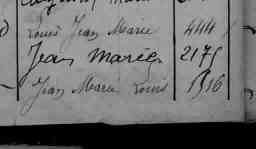 Louis Jean Marie 444
Jean Marie 2175
Jean Marie Louis 1316